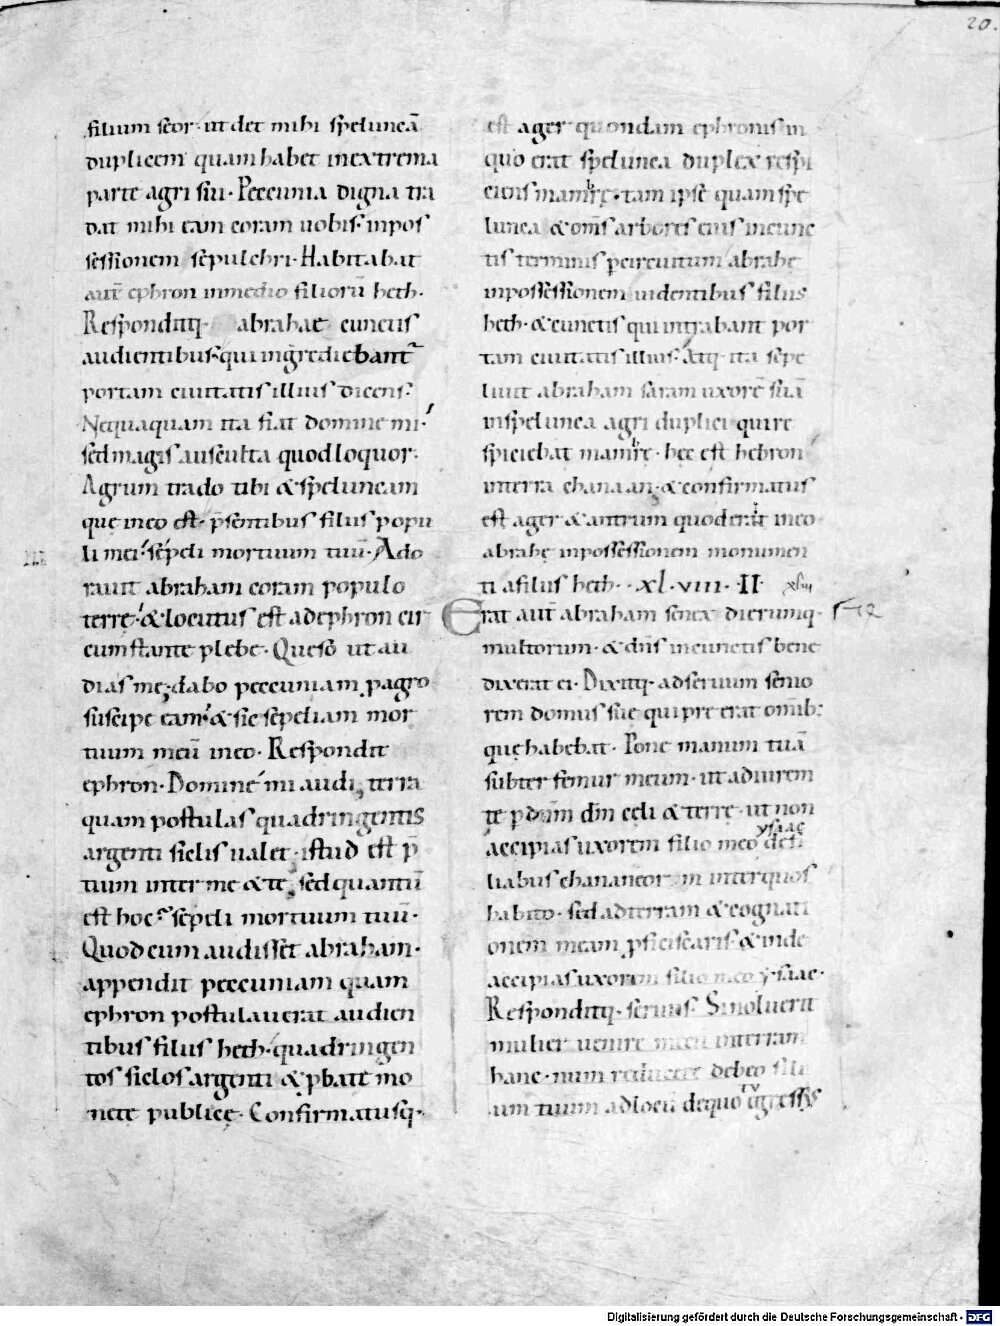 20.
filium seor· ut det mihi speluncā
duplicem quam habet inextrema
parte agri sui· Peccunia digna tra
dat mihi eam coram uobis· inpos
sessionem sepulchri· Habitabat
autē ephron inmedio filiorū heth·
Responditq; abrahae cunctis
audientibus· qui ingrediebant̄
portam ciuitatis illius dicens·
Nequaquam ita fiat domine mi·
sed magis ausculta quod loquor·
Agrum trado tibi & speluncam
quę ineo est· p̄sentibus filiis popu
li mei· sepeli mortuum tuū· Ado
rauit abraham coram populo
terrę· & locutus est adephron cir
cumstante plebe· Queso ut au
dias me; dabo peccuniam pagro
suscipe eam· & sic sepeliam mor
tuum meū ineo· Respondit
ephron· Domine mi audi, terra
quam postulas quadringentis
argenti siclis ualet· istud est p̄
tium inter me & te, sed quantū
est hoc? sepeli mortuum tuū·
Quod cum audisset abraham·
appendit peccuniam quam
ephron postulauerat audien
tibus filiis heth· quadringen
tos siclos argenti & pbatę mo
netę publicę· Confirmatusq·
est ager quondam ephronis in
quo erat spelunca duplex respi
ciens mambrę· tam ipse quam spe
lunca & om̄s arbores eius incunc
tis terminis pcircuitum abrahę
inpossessionem uidentibus filiis
heth· & cunctis qui intrabant por
tam ciuitatis illius· Atq; ita sepe
liuit abraham saram uxorē suā
inspelunca agri duplici qui re
spiciebat mambre· hec est hebron
interra chanaan· & confirmatus
est ager & antrum quod erat ineo
abrahę inpossessionem monumen
ti afiliis heth· ·xl·viii· II
Erat aut̄ abraham senex dierumq·
multorum· & dn̄s incunctis bene
dixerat ei· Dixitq· adseruum senio
rem domus suę qui pre erat omīb:
quę habebat· Pone manum tuā
subter femur meum· ut adiurem
te p dn̄m dm̄ cęli & terrę· ut non
accipias uxorem filio meo ysaac defi
liabus chananeor· in interquos
habito· sed adterram & cognati
onem meam pficiscaris· & inde
accipias uxorem filio meo ysaac·
Responditq· seruus· Si noluerit
mulier uenire mecū interram
hanc· num reducere debeo fili
um tuum adlocū dequo tu egressus
Digitalisierung gefördert durch die Deutsche Forschungsgemeinschaft - DFG